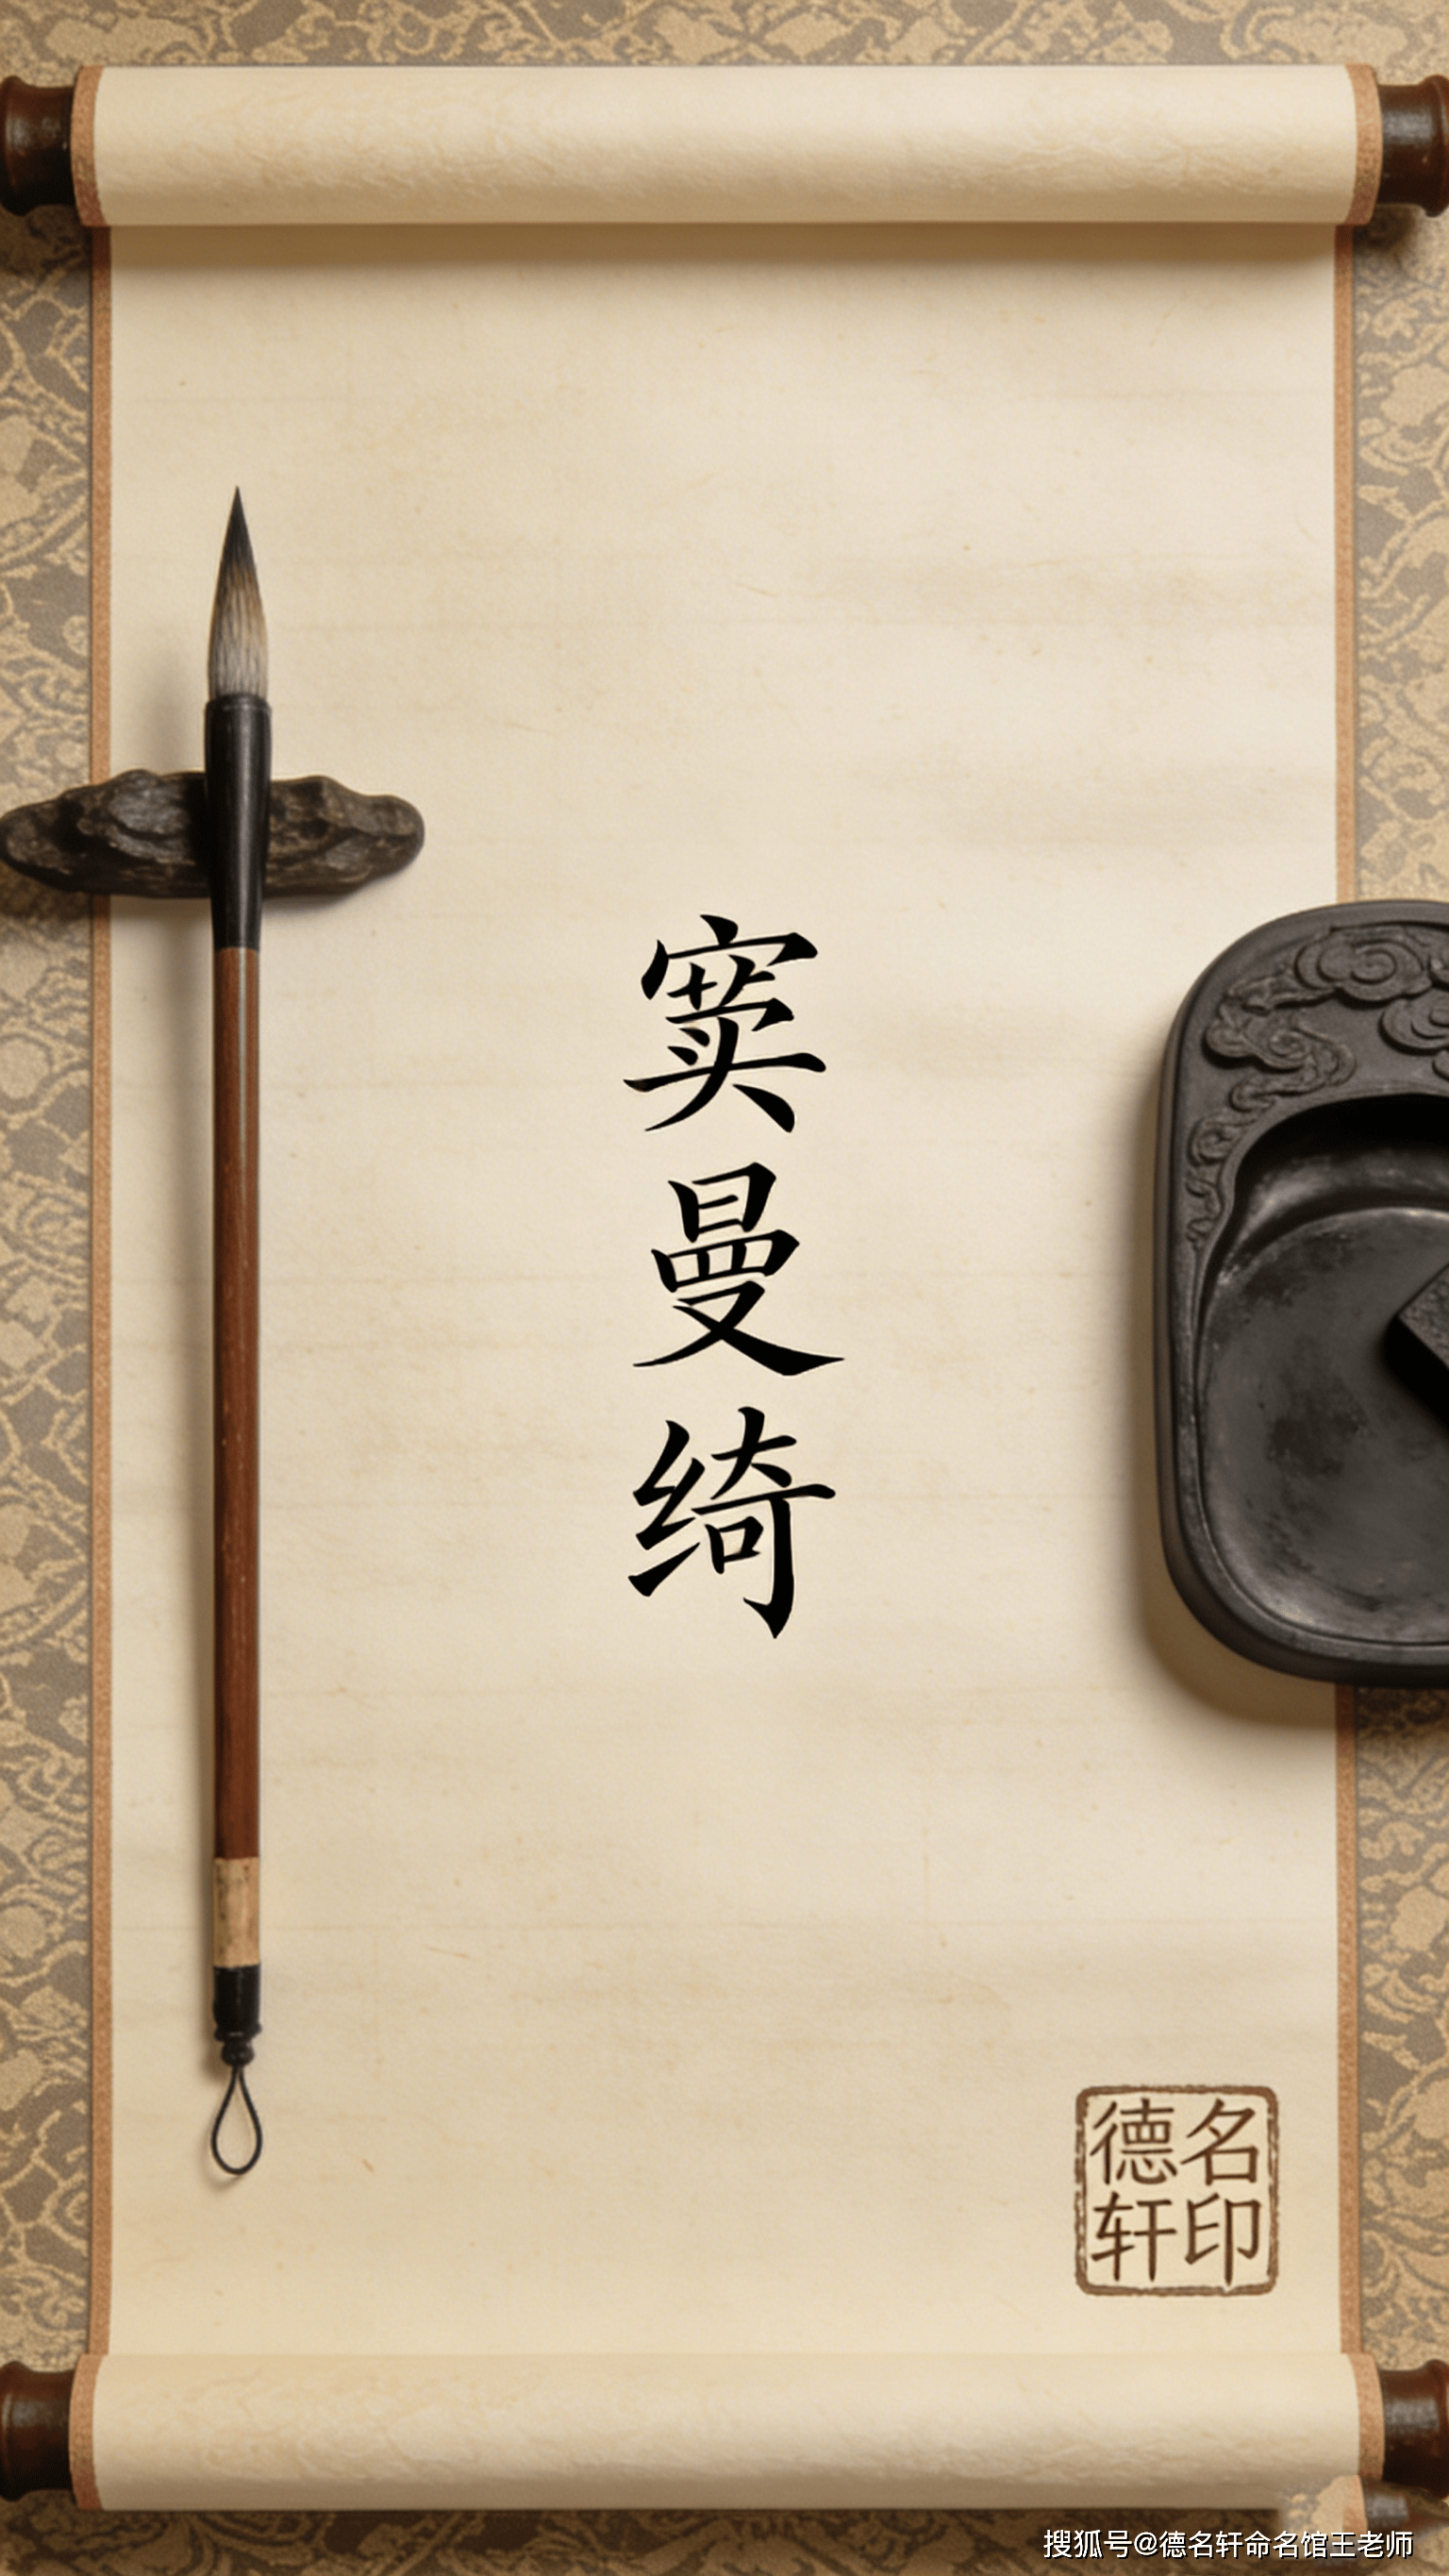 窦曼绮
德轩
名印
搜狐号@德名轩命名馆王老师